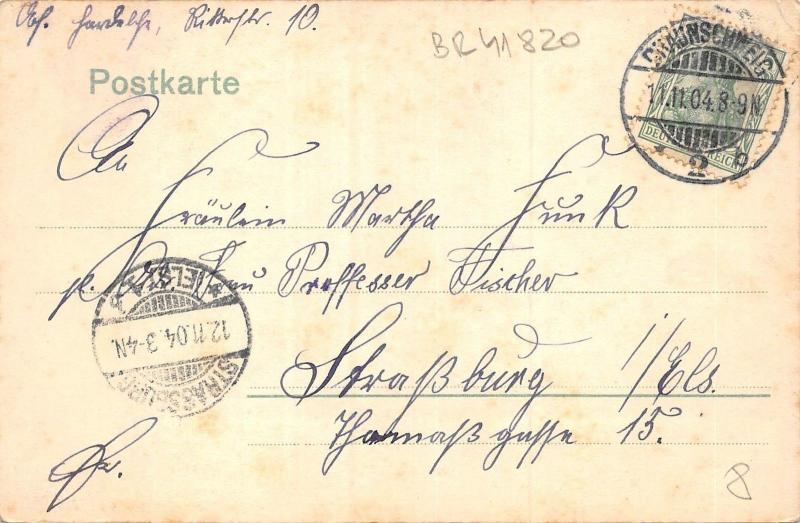 Abs. Hardelche, Ritterstr. 10.
BR41820
Postkarte
BRAUNSCHWEIG
11.11.04.8-9N.
* 2 e
DEUTSCHES REICH
An
Fräulein Martha Funk
p. Adr. Frau Proffesser Fischer
Straßburg i/Els.
Thomaßgasse 15.
Fr.
STRASSBURG
12.11.04.3-4N.
* (ELS.)
8